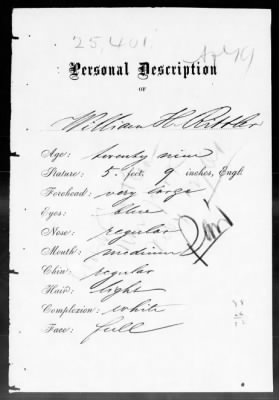 25,401.
Personal Description
OF
William H.
Age: twenty nine
Stature: 5 feet, 9 inches, Engl.
Forehead: very large
Eyes: blue
Nose: regular
Mouth: medium
Chin: regular
Hair: light
Complexion: white
Face: full